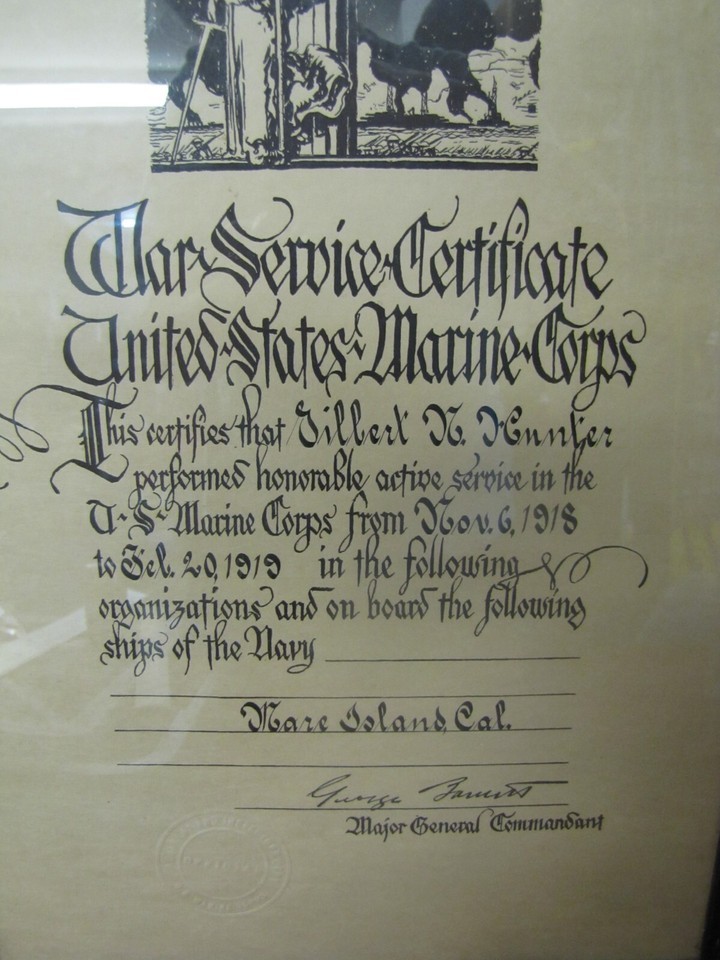 War Service Certificate
United States Marine Corps
This certifies that Gilbert N. Hunter
performed honorable active service in the
U. S. Marine Corps from Nov. 6, 1918
to Feb. 20, 1919 in the following
organizations and on board the following
ships of the Navy
Mare Island, Cal.
George Barnett
Major General Commandant